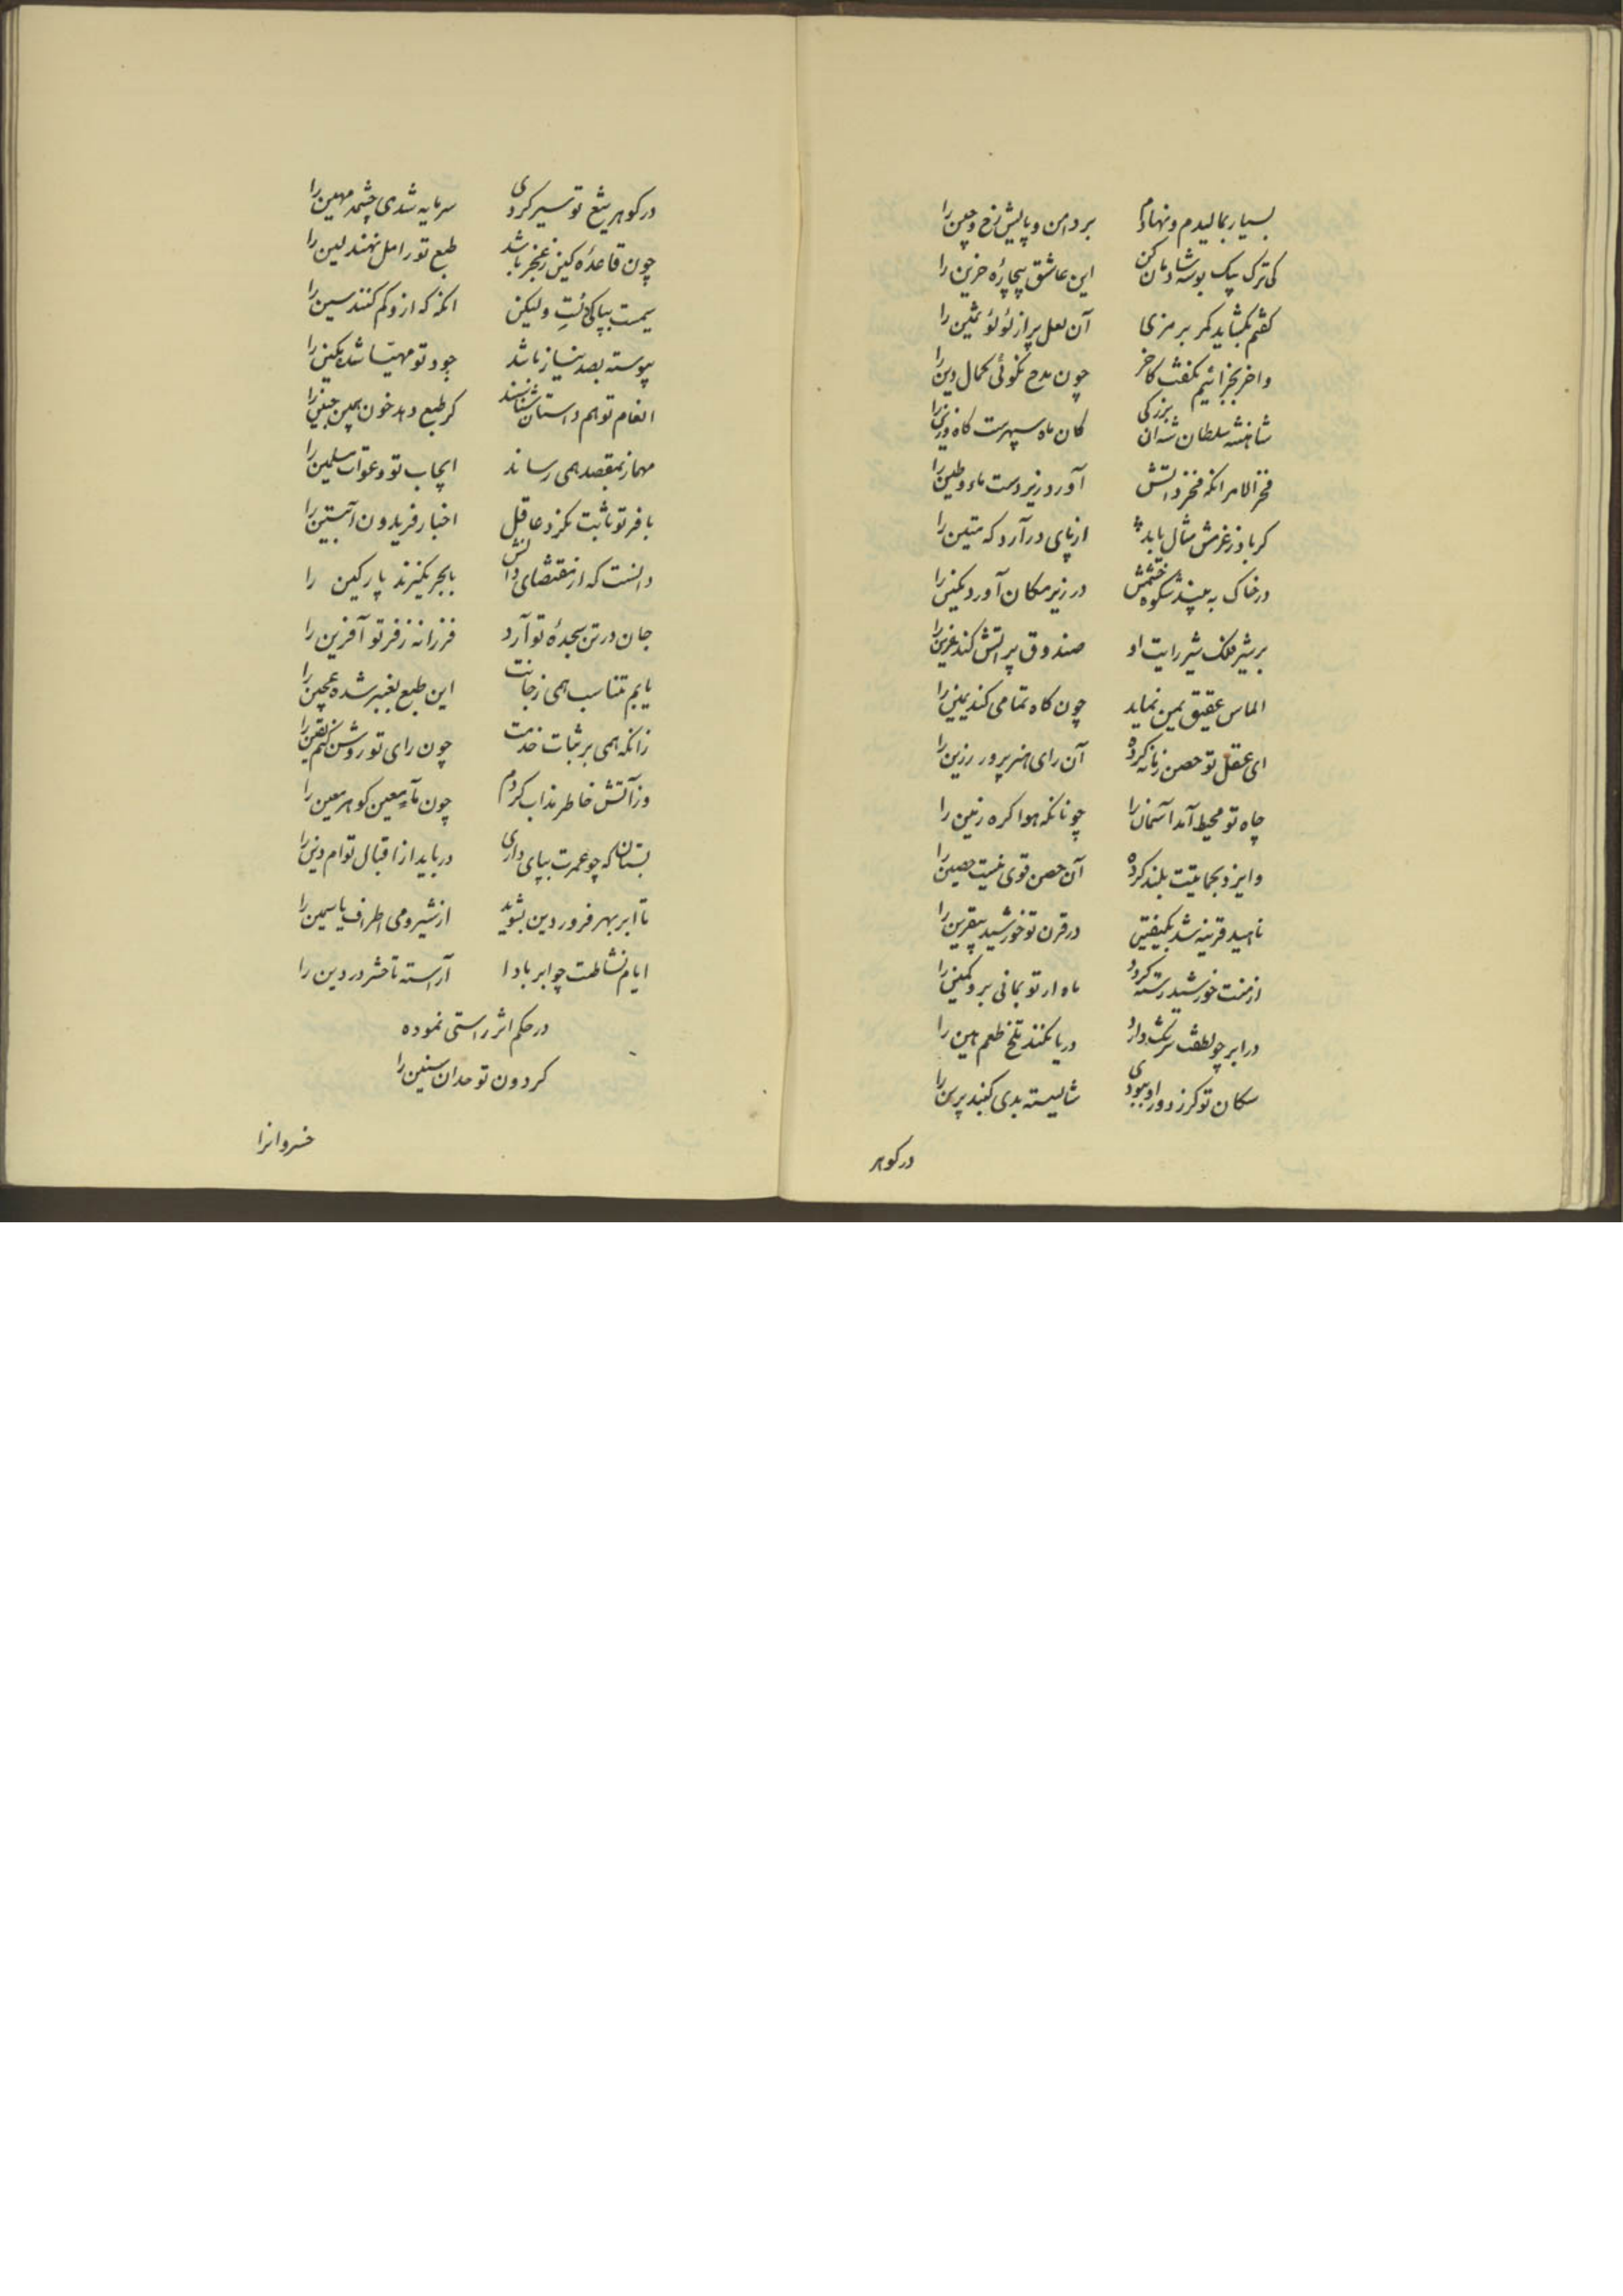 بسیار بمالیدم و نهادم بر دامن و پایش رخ و جبین را
کی ترک بیک بوسه شادمان کن این عاشق بیچارهٔ حزین را
کفتم بکشاید کمر برمزی آن لعل پر از لؤلؤ ثمین را
واخر بجزائیم بکفت کاخر چون مدح نکوئی کمال دین را
شاهنشه سلطان شه ان بزرکی کان ماه سپهرست کاه زین را
فخر الامرا انکه فخر ذاتش آورد زیر دست ماء و طین را
کر باد ز عزمش مثال یابد از پای درآرد که متین را
در خاک به بیند شکوه خشمش در زیر مکان آورد مکین را
بر شیر فلک شیر رایت او صندوق پر آتش کند عرین را
الماس عقیق یمن نماید چون کاه تمامی کند یمین را
ای عقل تو حصن زمانه کرده آن رای هنر پرور رزین را
جاه تو محیط آمد آسمان را چونانکه هوا کره زمین را
وایزد بحمایتت بلند کرده آن حصن قوی نیست حصین را
ناهید قرینه شد در قرن تو خورشید بیقرین را
از منت خورشید رسته کردد ماه ار تو بمانی برو کمین را
در ابر چو لطفت سرشک دارد دریا نکند تلخ طعم هین را
سکان تو کرز دور او نبودی شایسته بدی کنبد برین را
در کوهر
در کوهر تیغ تو سیر کردی سرمایه شدی چشمه مهین را
چون قاعدهٔ کین ز خنجر باشد طبع تو را مل نهند لین را
سیمت بپاکی تست ولیکن انکه که ازو کم کنند سین را
پیوسته بصد نیاز باشد جود تو مهیا شده مکین را
انعام تو هم داستان شناسند کر طبع دهد خون بمین جنین را
مهماز بمقصد همی رساند ایجاب تو دعوات سلمین را
با فر تو ثابت نکرد عاقل اخبار فریدون آبتین را
دانست که از مقتضای دانش با بحر نکیرند پارکین را
جان در تن سجدهٔ تو آرد فرزانه ز فر تو آفرین را
یابم تناسب همی زجانت این طبع بغیر شده عجین را
زانکه همی بر ثبات خدمت چون رای تو روشن کنم یقین را
وز آتش خاطر مذاب کردم چون مآء معین کوهر معین را
بستان که چو عمرت بپای داری دریابد از اقبال توام دین را
تا ابر بهر فروردین بشوید از شیر و می اطراف یاسمین را
ایام نشاطت چو ابر بادا آراسته تا حشر در دین را
در حکم اثر راستی نموده
کردون تو مدان سنین را
خسروانرا